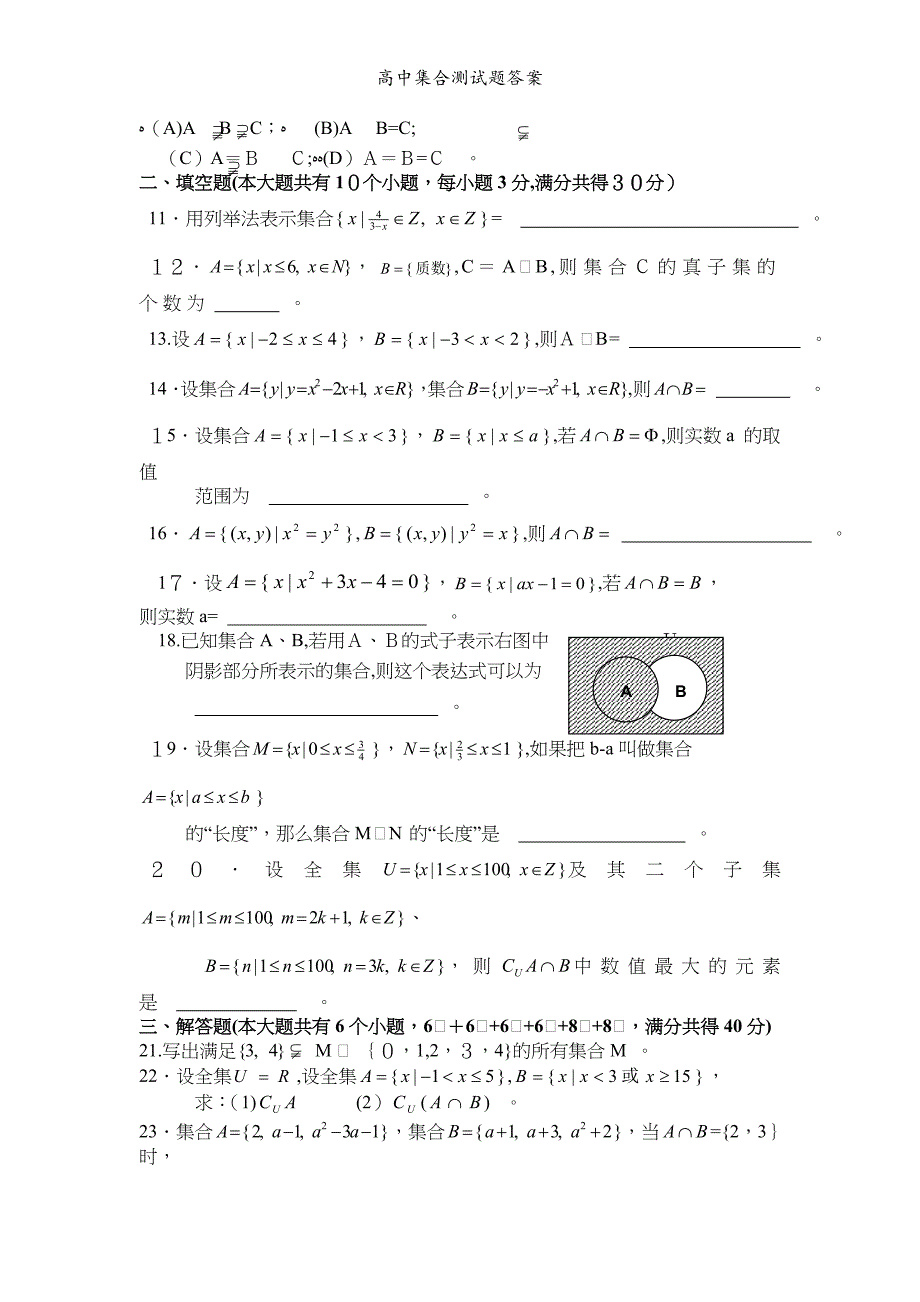 高中集合测试题答案
ﻩ（A)A⫌B⫌C；ﻩ (B)A⫋B=C;
（C）A＝B⫌C;ﻩﻩ(D）A＝B=C 。
二、填空题(本大题共有1０个小题，每小题3分,满分共得３０分）
11．用列举法表示集合{ x | 4/(3−x) ∈ Z, x ∈ Z } = 。
１２．A={x|x≤6, x∈N}，B={质数},C＝A□B,则集合C的真子集的
个数为 。
13.设A={ x | −2 ≤ x ≤ 4 }，B={ x | −3 < x < 2 },则A□B= 。
14．设集合A={y|y=x²−2x+1, x∈R}，集合B={y|y=−x²+1, x∈R},则A∩B= 。
１5．设集合A={ x | −1 ≤ x < 3 }，B={ x | x ≤ a },若A∩B=Φ,则实数a 的取
值
范围为 。
16．A={(x, y) | x² = y²}, B={(x, y) | y² = x},则A∩B= 。
１7．设A={ x | x² + 3x − 4 = 0 }，B={ x | ax − 1 = 0 },若A∩B=B，
则实数a= 。
18.已知集合A、B,若用A、B的式子表示右图中 U
阴影部分所表示的集合,则这个表达式可以为
A B
。
１9．设集合M={x|0≤x≤3/4}，N={x|2/3≤x≤1},如果把b-a叫做集合
A={x|a≤x≤b}
的“长度”，那么集合M□N的“长度”是 。
２０．设全集U={x|1≤x≤100, x∈Z}及其二个子集
A={m|1≤m≤100, m=2k+1, k∈Z}、
B={n|1≤n≤100, n=3k, k∈Z}，则C_U A∩B中数值最大的元素
是 。
三、解答题(本大题共有6个小题，6□＋6□+6□+6□+8□+8□，满分共得40分)
21.写出满足{3, 4}⫋M□｛０，1,2，３，4}的所有集合M 。
22．设全集U = R ,设全集A={ x | −1 < x ≤ 5 }, B={ x | x < 3 或 x ≥ 15 }，
求：（1)C_U A (2）C_U (A ∩ B) 。
23．集合A={2, a−1, a²−3a−1}，集合B={a+1, a+3, a²+2}，当A∩B={2，3｝
时，